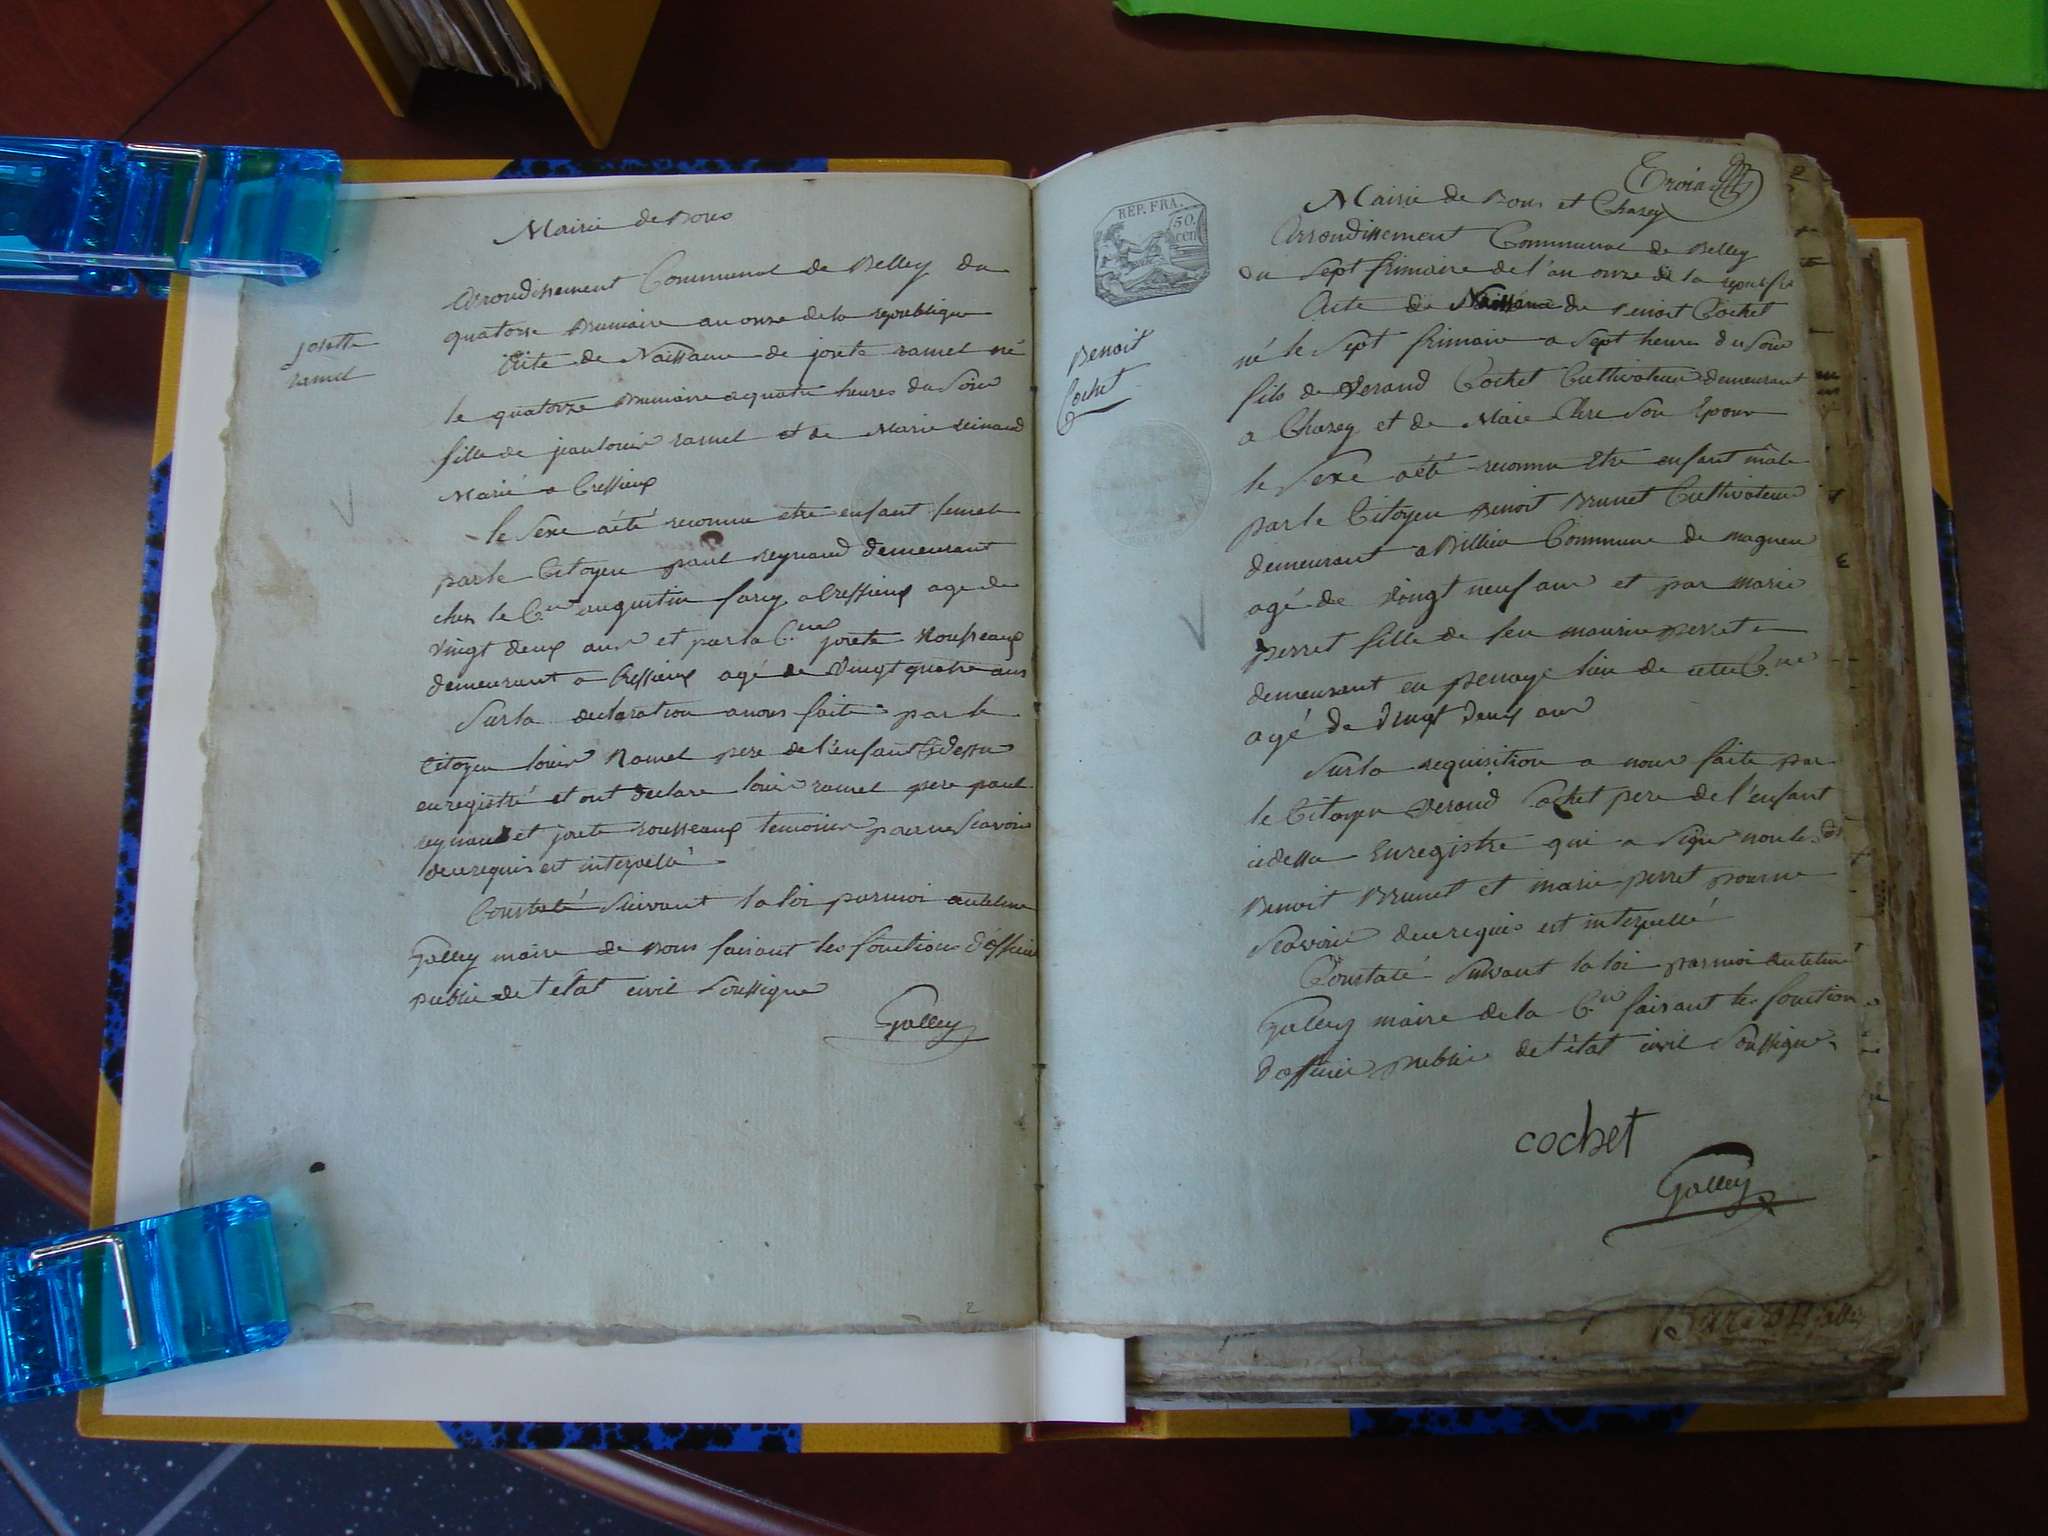 Mairie de Bons
arrondissement Communal de Belley du
quatorse Brumaire an onze de la republique
josette
ramel
Acte de Naissance de josete ramel né
le quatorze Brumaire a quatre heures du Soir
fille de jean louis ramel et de Marie
Marié a Cressieux
le Sexe a été reconnu etre enfant femel
par le Citoyen paul reynaud demeurant
ches le C.en augustin farcy a Cressieux age de
vingt deux ans et par la C.ne josete Rousseaux
demeurant a Cressieux agé de vingt quatre ans
Sur la declaration a nous faite par le
Citoyen louis Ramel pere de l'enfant Cidessu
enregistré et ont declare louis ramel pere paul
reynaud et josete rousseaux temoins pour ne Scavoir
de ce requis et interpellé
Constaté Suivant la loi par moi antelme
Galley maire de Bons faisant les fonctions d'officier
public de l'etat civil Soussigne
Galley
2
Trois
REP. FRA.
50.
cen
Mairie de Bons et Chazey
Arrondissement Communal de Belley
du Sept frimaire de l'an onze de la repu fr
Benoit
Cochet
Acte de Naissance de Benoit Cochet
né le Sept frimaire a Sept heures du Soir
fils de Verand Cochet Cultivateur demeurant
a Chazey et de Marie Clere Son Epouse
le Sexe a été reconnu Etre enfant mâle
par le Citoyen Benoit Brunet Cultivateur
demeurant a Billieu Commune de magneu
agé de vingt neuf ans et par marie
perret fille de feu maurice perret
demeurant en penaye lieu de cette C.ne
agé de vingt deux ans
Sur la requisition a nous faite par
le Citoyen Verand Cochet pere de l'enfant
cidessu Enregistre qui a Signe non les dts
Benoit Brunet et marie perret pour ne
Scavoir de ce requis et interpellé
Constaté Suivant la loi par moi antelme
Galley maire de la C.ne faisant les fonctions
d'officier public de l'état civil Soussigne
cochet
Galley